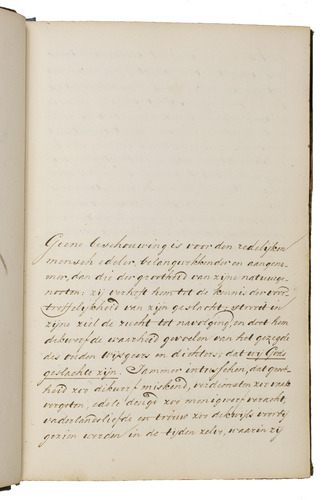 Geene beschouwing is voor den redelijken
mensch edeler, belangwekkender en aangena-
mer, dan die der grootheid van zijne natuurge-
nooten; zij verheft hem tot de kennis der voor-
treffelijkheid van zijn geslacht, stort in
zijne ziel de zucht tot navolging, en doet hem
dikwerf de waarheid gevoelen van het gezegde
des ouden wijsgeers en dichters; dat wij Gods
geslachte zijn. Jammer intusschen, dat groot-
heid zoo dikwerf miskend, verdiensten zoo vaak
vergeten, edele deugd zoo menigwerf veracht,
vaderlandsliefde en trouw zoo dikwijls voorbij
gezien werden in de tijden zelve, waarin zij